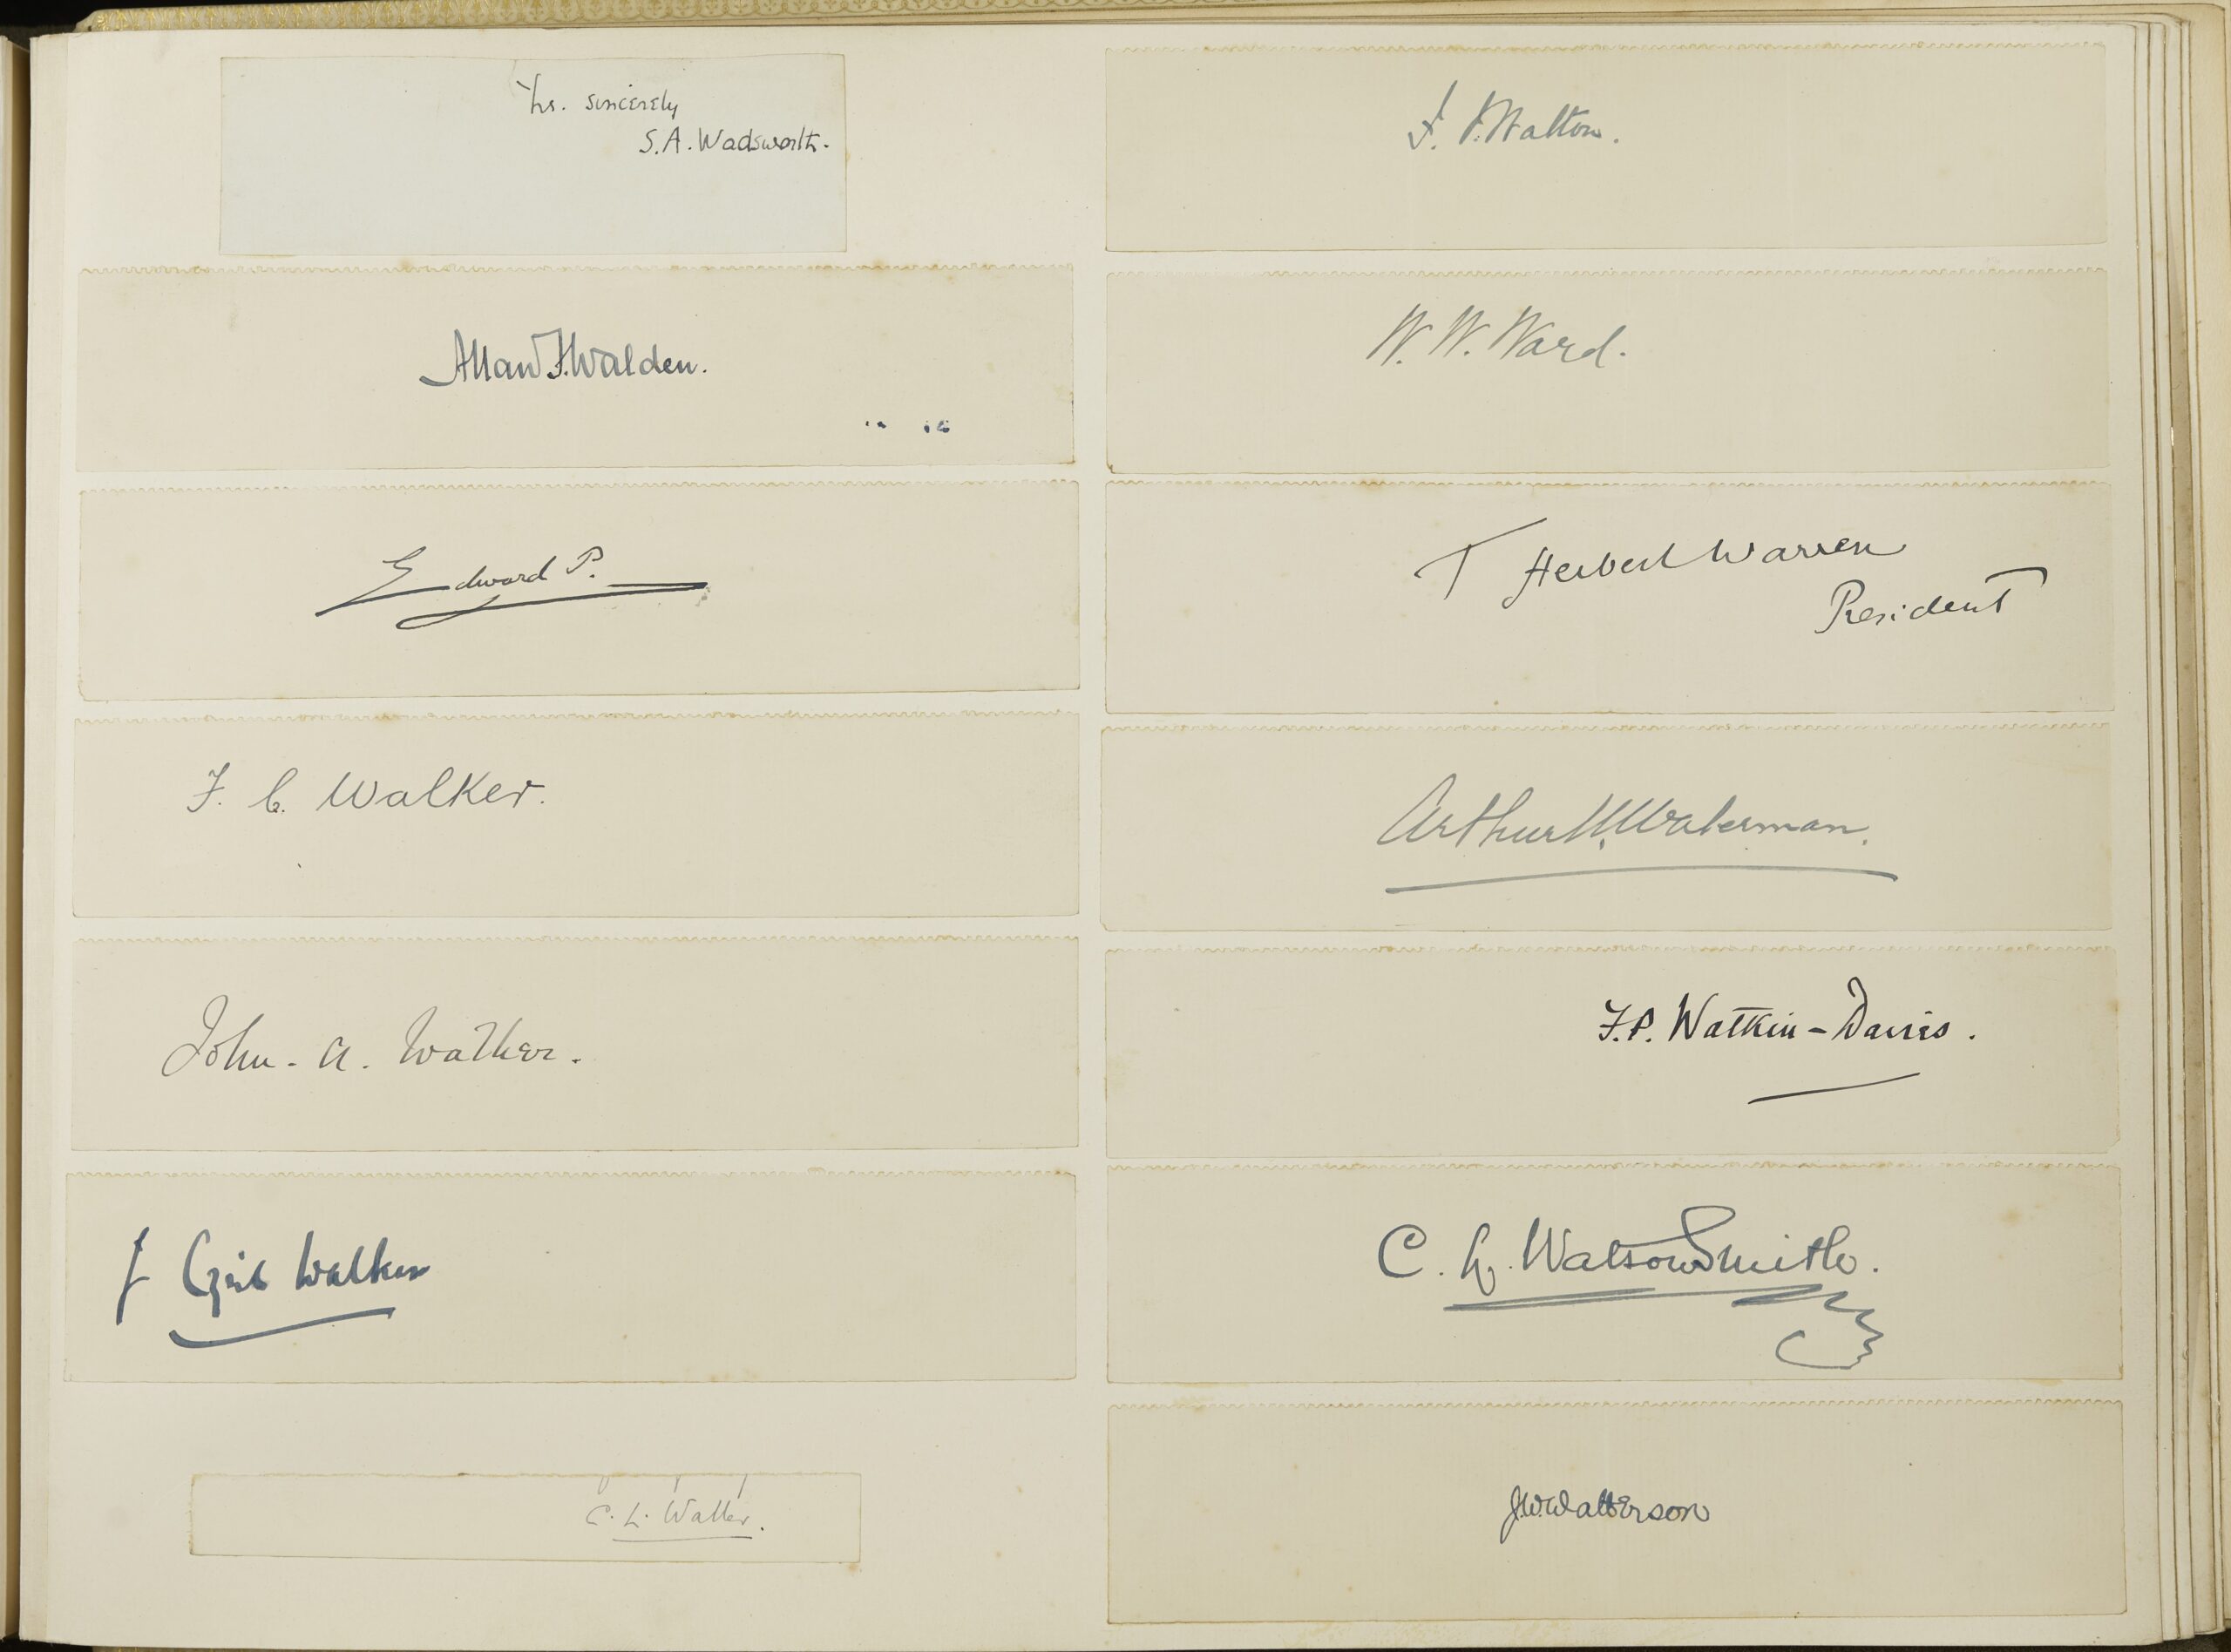 Yrs. sincerely
S.A. Wadsworth.
Allan F. Walden.
Edward P.
F. C. Walker.
John. A. Walker.
J Cyril Walker
C. L. Waller.
F. P. Walton.
W. W. Ward.
T Herbert Warren
President
Arthur W. Waterman.
F.P. Watkin-Davies.
C. H. Watson Smith.
J.W. Watterson